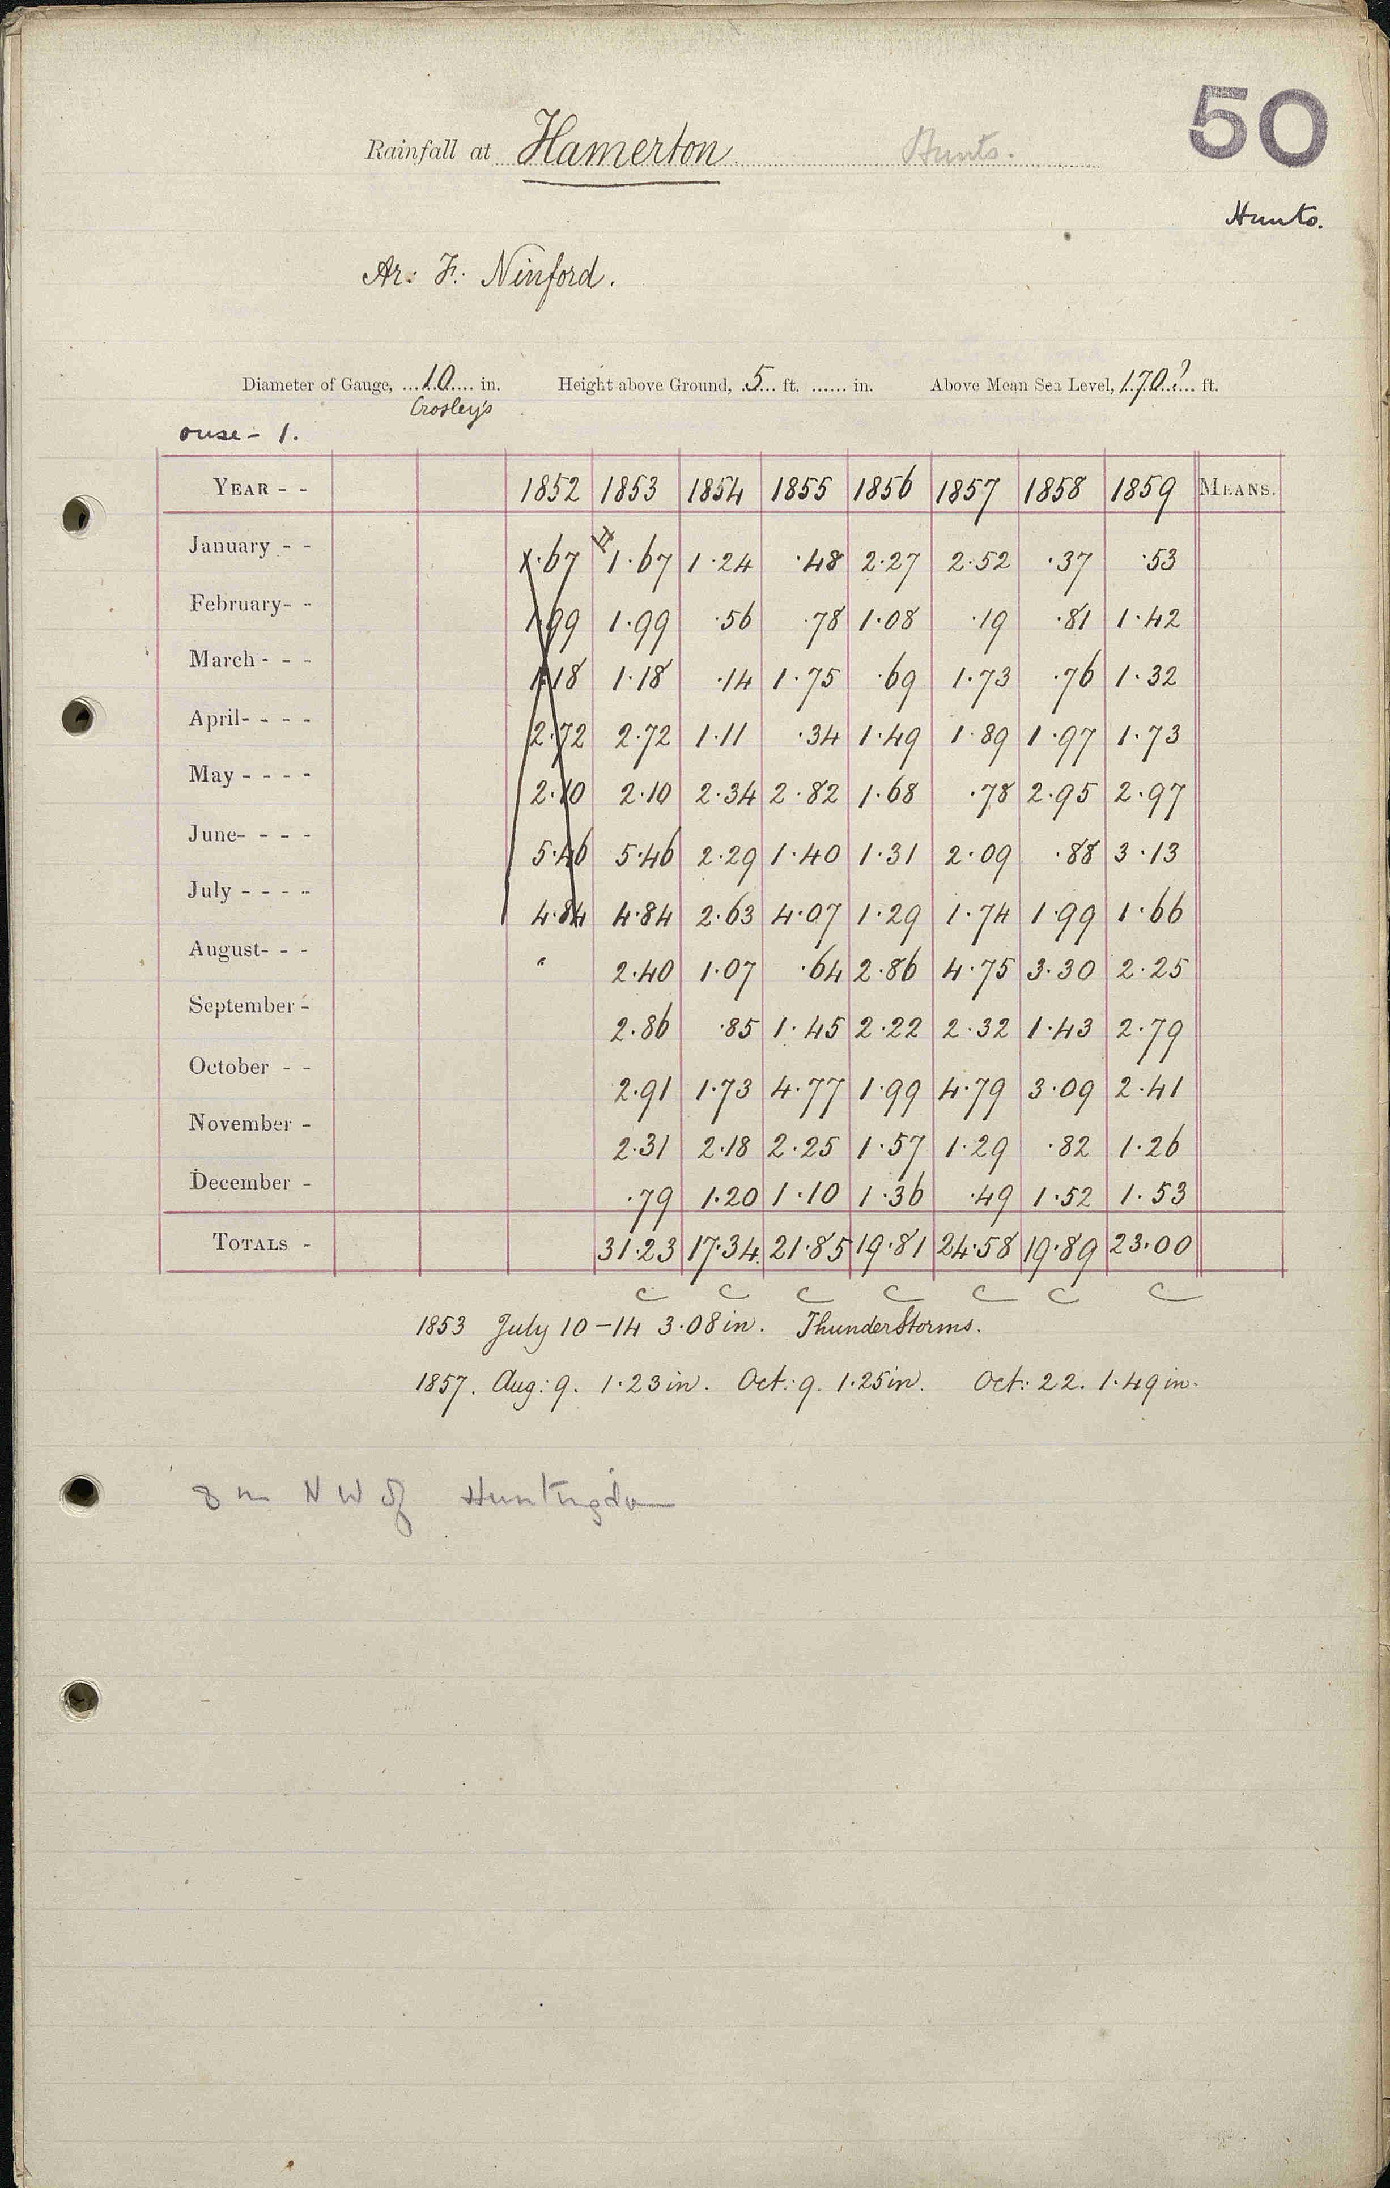 50
Rainfall at Hamerton Hunts.
Hunts.
Ar: F: Ninford.
Diameter of Gauge, 10 in. Height above Ground, 5 ft. in. Above Mean Sea Level, 170? ft.
Crosley's
ouse - 1.
YEAR - - 1852 1853 1854 1855 1856 1857 1858 1859 MEANS.
January - - 1.67 1.67 1.24 .48 2.27 2.52 .37 .53
February- - 1.99 1.99 .56 .78 1.08 .19 .81 1.42
March - - - 1.18 1.18 .14 1.75 .69 1.73 .76 1.32
April- - - - 2.72 2.72 1.11 .34 1.49 1.89 1.97 1.73
May - - - - 2.10 2.10 2.34 2.82 1.68 .78 2.95 2.97
June- - - - 5.46 5.46 2.29 1.40 1.31 2.09 .88 3.13
July - - - - 4.84 4.84 2.63 4.07 1.29 1.74 1.99 1.66
August- - - " 2.40 1.07 .64 2.86 4.75 3.30 2.25
September - 2.86 .85 1.45 2.22 2.32 1.43 2.79
October - - 2.91 1.73 4.77 1.99 4.79 3.09 2.41
November - 2.31 2.18 2.25 1.57 1.29 .82 1.26
December - .79 1.20 1.10 1.36 .49 1.52 1.53
TOTALS - 31.23 17.34 21.85 19.81 24.58 19.89 23.00
c c c c c c c
1853 July 10 - 14 3.08 in. Thunder Storms.
1857. Aug: 9. 1.23 in. Oct: 9. 1.25 in. Oct: 22. 1.49 in.
8 m N W of Huntingdon